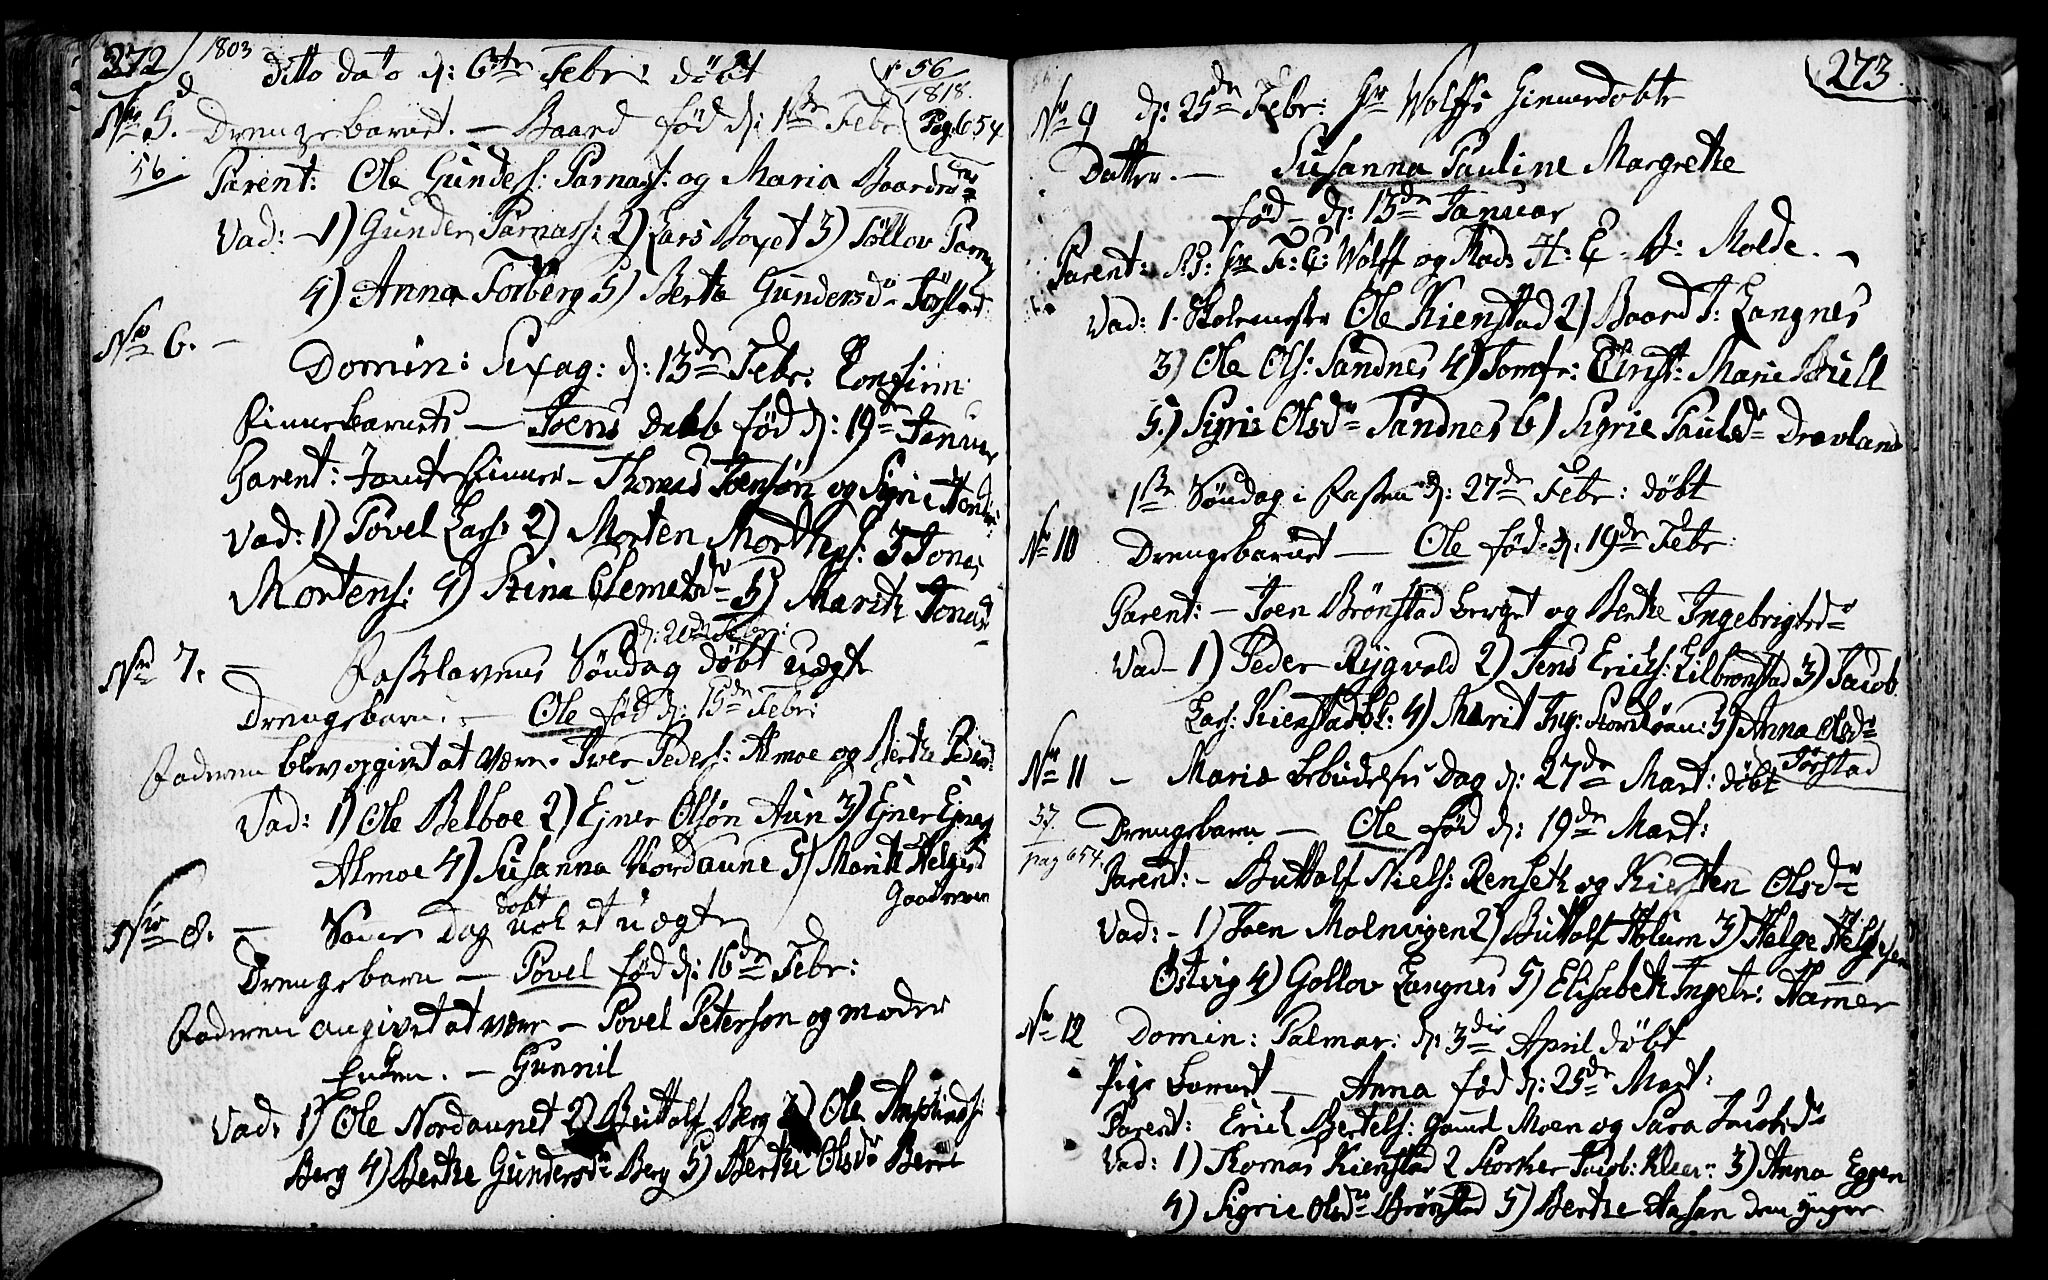 272 / 1803
Ditto dato d: 6te Febr: døbt
No 5. Drengebarnet. – Baard fød d: 1ste Febr
No 56
1818.
Pag: 654
56
Parent: Ole Gunders: Parnass: og Maria Baardsd
Vad: – 1) Gunder Parnass: 2) Lars Boxet 3) Tollov Parnas
4) Anna Forberg 5) Berthe Gundersd Tørstad
No 6. –
Domin: Sexag: d: 13de Febr: Confirm:
Finnebarnets – Joens daab fød d: 19de Januar
Parent: Finner – Thomas Joensøn og Sigri
Vad: 1) Povel Lars: 2) Morten Morthens: 3 Jonas
Mortens: 4) Stina Clemetsd 5) Marith Jonasd
d: 20de Febr:
No 7. – Fastelavens Søndag døbt uægte
Drengebarn. – Ole fød d: 15de Febr:
Faderen blev opgivet at være Iver Peders: Almoe og Berthe Pedersd:
Vad: 1) Ole Belboe 2) Ejner Olsøn Aun 3) Ejner Ejners
Almoe 4) Susanna Nordaune 5) Marith Helgesd
No 8. – Samme Dag døbt et uægte
Drengebarn – Povel fød d: 16de Febr:
Faderen angivet at være – Povel Petersøn og moder
Enken. – Gunnil
Vad: 1) Ole Nordaunet 2) Buttolf Berg 3) Ole
Berg 4) Berthe Gundersd Berg 5) Berthe Olsd Berre
273
No 9 d: 25de Febr: Hr Wolffs hiemmedøbte
Datter. – Susanna Pauline Margrethe
fød – d: 13de Januar
Parent: S: Hr F: C: Wolff og Mad: H: C. B: Molde. –
Vad: 1. Skolemester Ole Kienstad 2) Baard T: Langnes
3) Ole Ols: Sandnes 4) Jomfr: Christ: Marie Bull
5.) Sigrie Olsd Sandnes 6) Sigrie Paulsd Drevland
1ste Søndag i Fasten d: 27de Febr: døbt
No 10 Drengebarnet – Ole fød d: 19de Febr:
Parent: – Joen Brønstad Levret og Berthe Ingebrigtsd
Vad – 1) Peder Rygvold 2) Jens Erichs: Lilbrønstad 3) Jacob
Lars: Kienstad 4) Marit Ing: 5) Anna Olsd
Tørstad
No 11 – Mariæ Bebudelses Dag d: 27de Mart: døbt
57.
pag 654.
Drengebarn – Ole fød d: 19de Mart:
Parent: – Buttolf Niels: Renseth og Kiersten Olsd
Vad: – 1) Joen Molnvigen 2) Buttolf Holum 3) Helge Helgesen
Østvig 4) Gollov Langnes 5) Elisabeth Ingebr: Hammer
No 12 Domin: Palmar: d: 3die April døbt
Pige Barnet – Anna fød d: 25de Mart:
Parent: Erich Bertels: Gaml Moen og Sara Jacobsd
Vad: 1) Thomas Kienstad 2 Storker Jacob: Kleer: 3) Anna Eggen
4) Sigrie Olsd Brønstad 5) Berthe Aasen den yngre